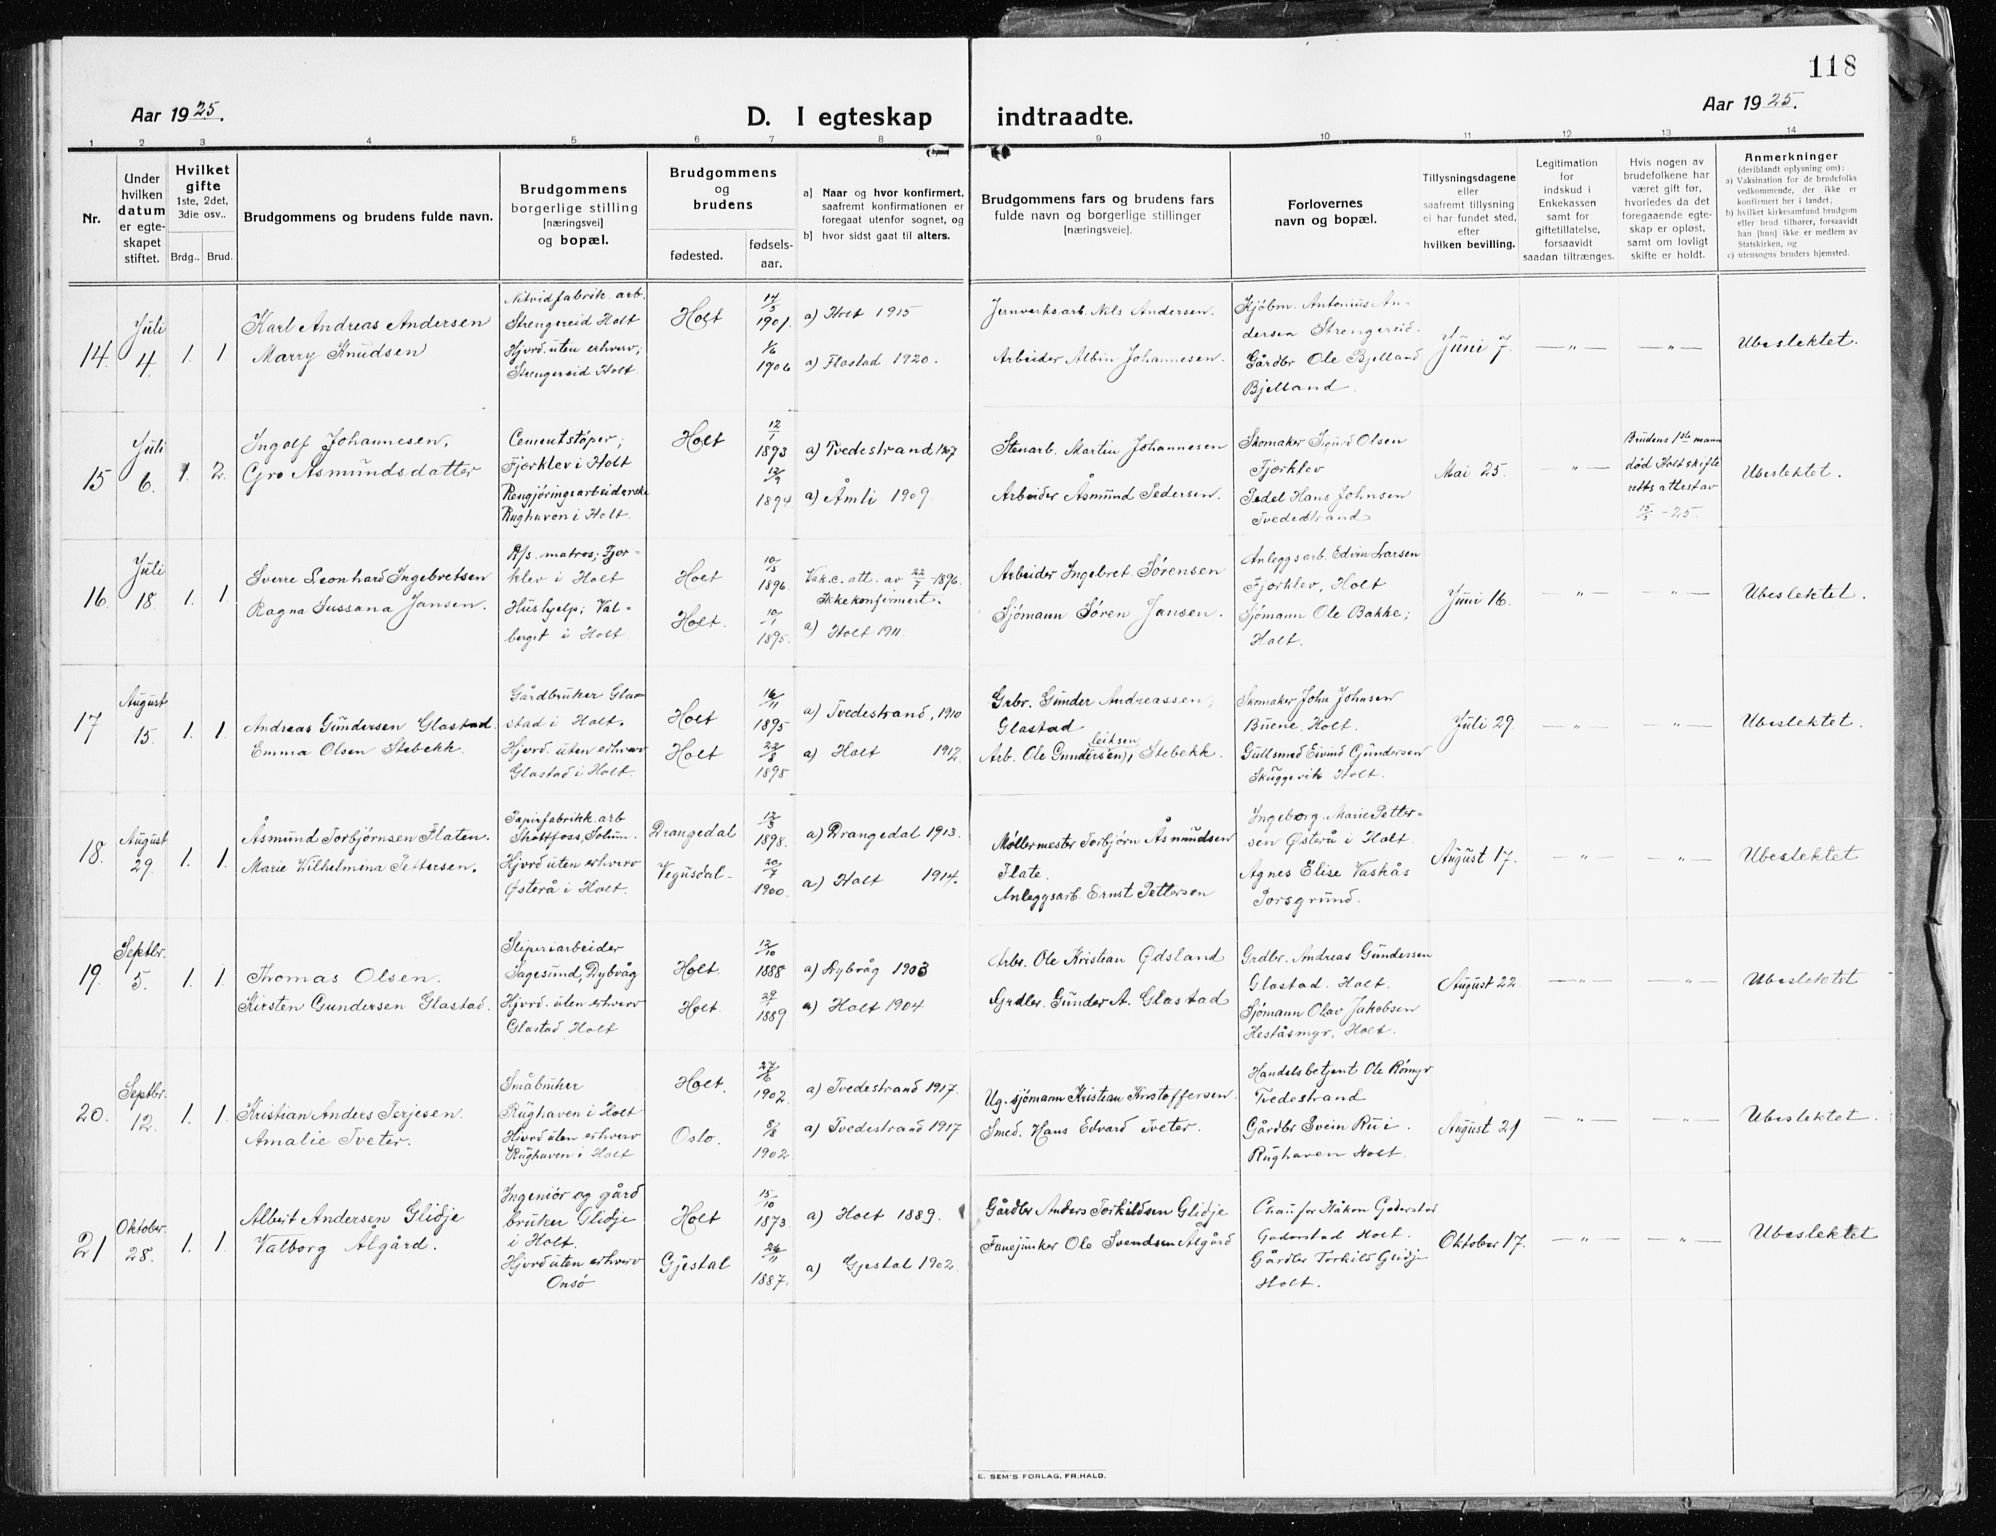 118
Aar 1925.
D. I egteskap indtraadte.
Aar 1925.
1 2 3 4 5 6 7 8 9 10 11 12 13 14
Nr.
Under hvilken datum er egteskapet stiftet.
Hvilket gifte 1ste, 2det, 3die osv..
Brdg.. Brud.
Brudgommens og brudens fulde navn.
Brudgommens borgerlige stilling [næringsvei] og bopæl.
Brudgommens og brudens
fødested.
fødsels-aar.
a] Naar og hvor konfirmert, saafremt konfirmationen er foregaat utenfor sognet, og
b] hvor sidst gaat til alters.
Brudgommens fars og brudens fars fulde navn og borgerlige stillinger [næringsveie].
Forlovernes navn og bopæl.
Tillysningsdagene eller saafremt tillysning ei har fundet sted, efter hvilken bevilling.
Legitimation for indskud i Enkekassen samt for giftetillatelse, forsaavidt saadan tiltrænges.
Hvis nogen av brudefolkene har været gift før, hvorledes da det foregaaende egteskap er opløst, samt om lovligt skifte er holdt.
Anmerkninger
(deriblandt oplysning om):
a) Vaksination for de brudefolks vedkommende, der ikke er konfirmert her i landet;
b) hvilket kirkesamfund brudgom eller brud tilhører, forsaavidt han [hun] ikke er medlem av Statskirken, og
c) utensogns bruders hjemsted.
14. Juli 4. 1. 1.
Karl Andreas Andersen
Marry Knudsen
Nitridfabrik. arb.
Strengereid Holt
Hjvrd. uten erhverv;
Strengereid Holt.
Holt
14/5 1901.
1/6 1906
a) Holt 1915
a) Flostad 1920.
Jernverksarb. Nils Andersen.
Arbeider Albin Johannesen.
Kjøbm. Antonius An-
dersen Strengereid.
Gårdbr Ole Bjelland
Bjelland.
Juni 7.
—„— —„—
Ubeslektet.
15 Juli 6. 1. 2.
Ingolf Johannesen.
Gro Asmundsdatter
Cementstøper;
Fjorklev i Holt
Rengjøringsarbeiderske
Rughaven i Holt.
Holt
12/1 1893
12/9 1894
a) Tvedestrand 1907
a) Åmli 1909.
Stenarb. Martin Johannesen
Arbeider Åsmund Pedersen.
Skomaker Sigurd Olsen
Fjorklev
Pedel Hans Johnsen
Tvedestrand
Mai 25.
—„—
Brudens 1ste mann
død Holt skifte
retts attest av
15/5 -25.
Ubeslektet.
16. Juli 18. 1. 1.
Sverre Leonhard Ingebretsen
Ragna Sussana Jansen.
D/s. matros; Fjor-
klev i Holt
Hushjelp; Val-
berget i Holt.
Holt
Holt.
10/5 1896
10/1 1895.
Vak.c. att. av 22/7 1896.
Ikke konfirmert.
a) Holt 1911.
Arbeider Ingebret Sørensen
Sjømann Søren Jansen.
Anleggsarb. Edvin Larsen
Fjorklev, Holt
Sjømann Ole Bakke;
Holt.
Juni 16.
—„— —„—
Ubeslektet.
17 August 15. 1. 1.
Andreas Gundersen Glastad.
Emma Olsen Stebekk.
Gårdbruker Gla-
stad i Holt.
Hjvrd. uten erhverv
Glastad i Holt.
Holt
Holt
16/11 1895
22/8 1898
a) Tvedestrand, 1910
a) Holt 1912.
Grbr. Gunder Andreassen;
Glastad
leiksen
Arb. Ole Gundersen), Stebekk.
Skomaker John Johnsen
Buene, Holt.
Gullsmed Eivind Gundersen
Skuggevik Holt.
Juli 29
—„— —„—
Ubeslektet.
18. August 29. 1. 1.
Åsmund Torbjørnsen Flaten.
Marie Wilhelmina Pettersen.
Papirfabrikk.arb
Skotfoss, Solum.
Hjvrd uten erhverv
Østerå i Holt.
Drangedal
Vegusdal.
12/3 1898.
20/7 1900.
a) Drangedal 1913.
a) Holt 1914.
Møllermester Torbjørn Åsmundsen
Flate.
Anleggsarb. Ernst Pettersen
Ingeborg Marie Petter-
sen Østerå i Holt.
Agnes Elise Vaskås
Porsgrund.
August 17.
—„— —„—
Ubeslektet
19. Septbr. 5. 1. 1.
Thomas Olsen.
Kirsten Gundersen Glastad.
Sliperiarbeider
Sagesund, Dybvåg
Hjvrd. uten erhverv
Glastad Holt
Holt.
Holt.
12/10 1888
29/1 1889
a) Dybvåg 1903
a) Holt 1904
Arbr. Ole Kristian Ødsland
Grdbr. Gunder A. Glastad
Grdbr. Andreas Gundersen
Glastad. Holt.
Sjømann Olav Jakobsen
Heståsmyr, Holt.
August 22.
—„— —„—
Ubeslektet
20. Septbr. 12. 1. 1.
Kristian Anders Terjesen.
Amalie Tveter.
Småbruker
Rughaven i Holt
Hjvrd uten erhverv
Rughaven i Holt
Holt.
Oslo.
27/6 1902
8/8 1902
a) Tvedestrand 1917.
a) Tvedestrand 1917
Ug. sjømann Kristian Kristoffersen.
Smed. Hans Edvard Tveter.
Handelsbetjent Ole Rømyr
Tvedestrand
Gårdbr Svein Rui.
Rughaven Holt.
August 21
—„— —„—
Ubeslektet.
21 Oktober. 28. 1. 1.
Albert Andersen Glidje
Valborg Ålgård.
Ingeniør og gård
bruker Glidje
i Holt.
Hjvrd uten erhverv
Onsø
Holt
Gjestal
15/10 1873
26/11 1887.
a) Holt 1889.
a) Gjestal 1902.
Gårdbr Anders Torkildsen Glidje
Fanejunker Ole Svendsen Ålgård
Chaufør Håkon Goderstad
Goderstad Holt.
Gårdbr Torkild Glidje
Holt.
Oktober 17.
—„— —„—
Ubeslektet
E. SEM'S FORLAG, FR.HALD.